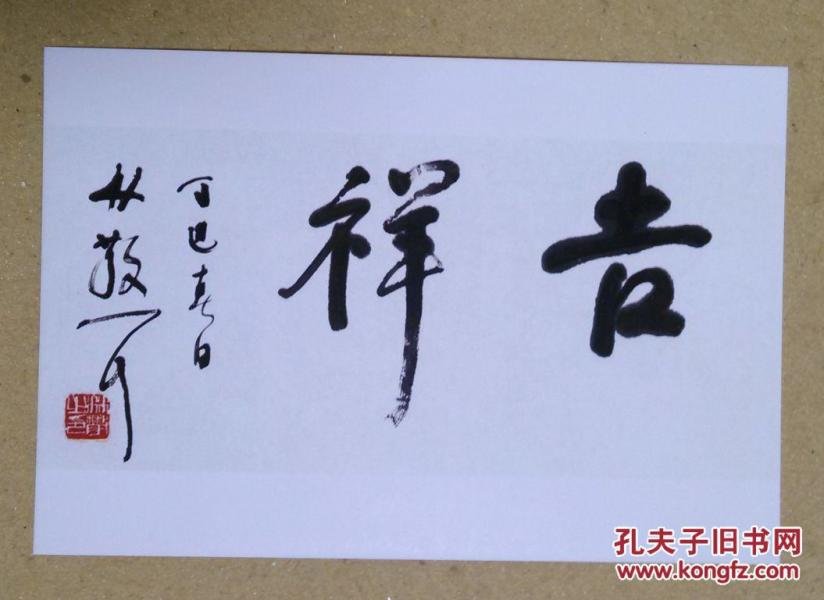 吉祥
丁巳春日
林散耳
孔夫子旧书网
www.kongfz.com